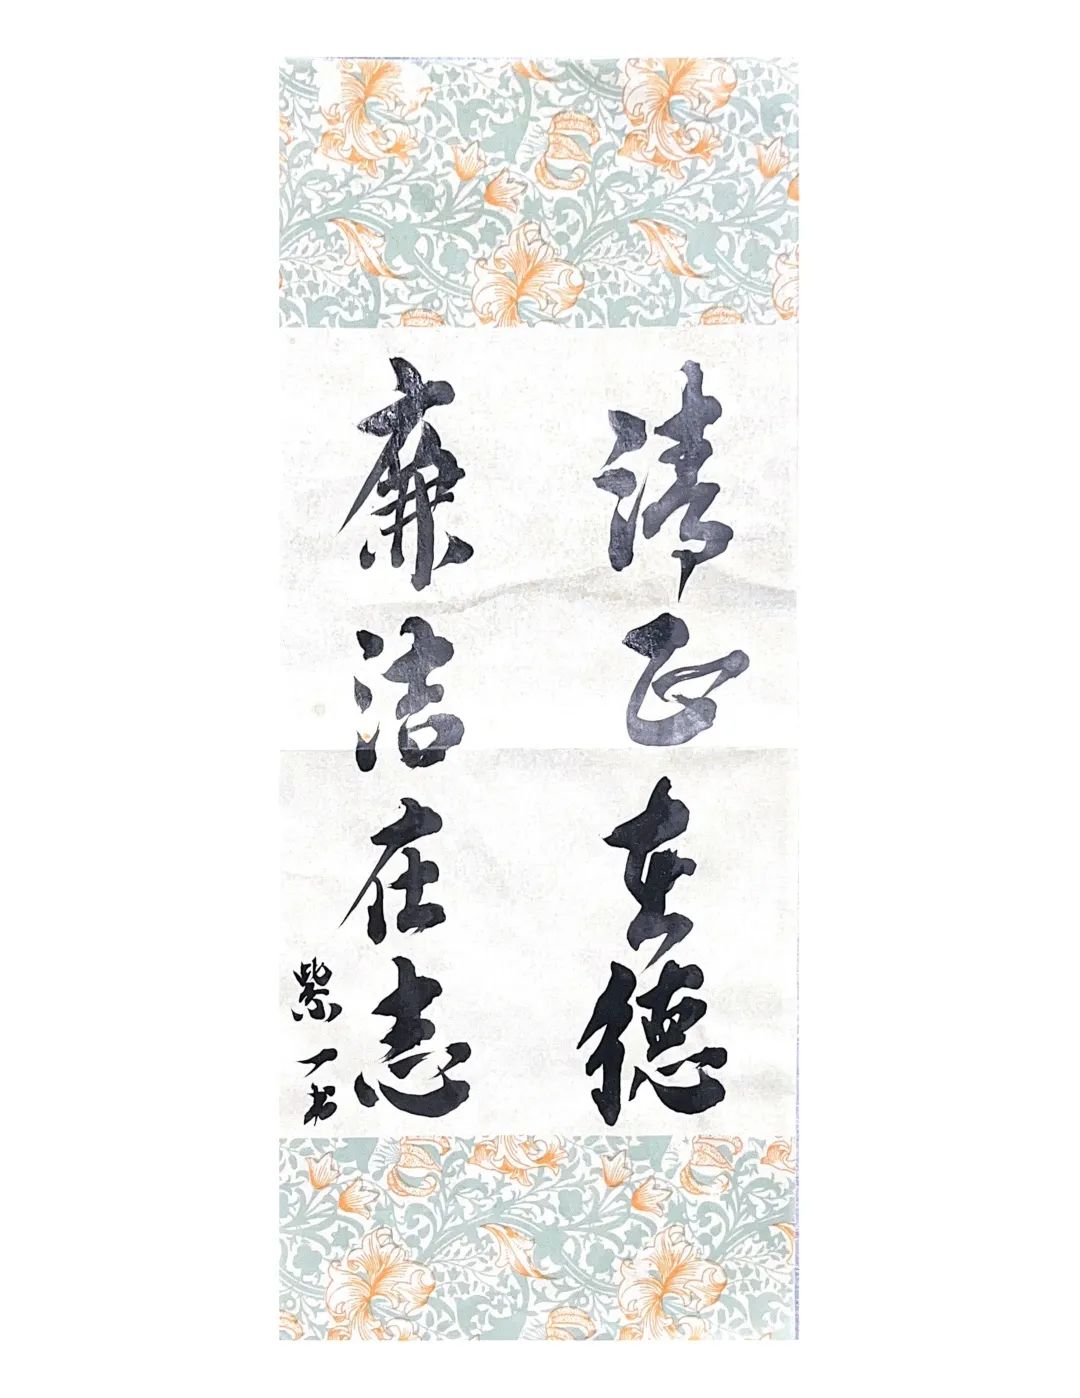 清正在德
廉洁在志
紫一书